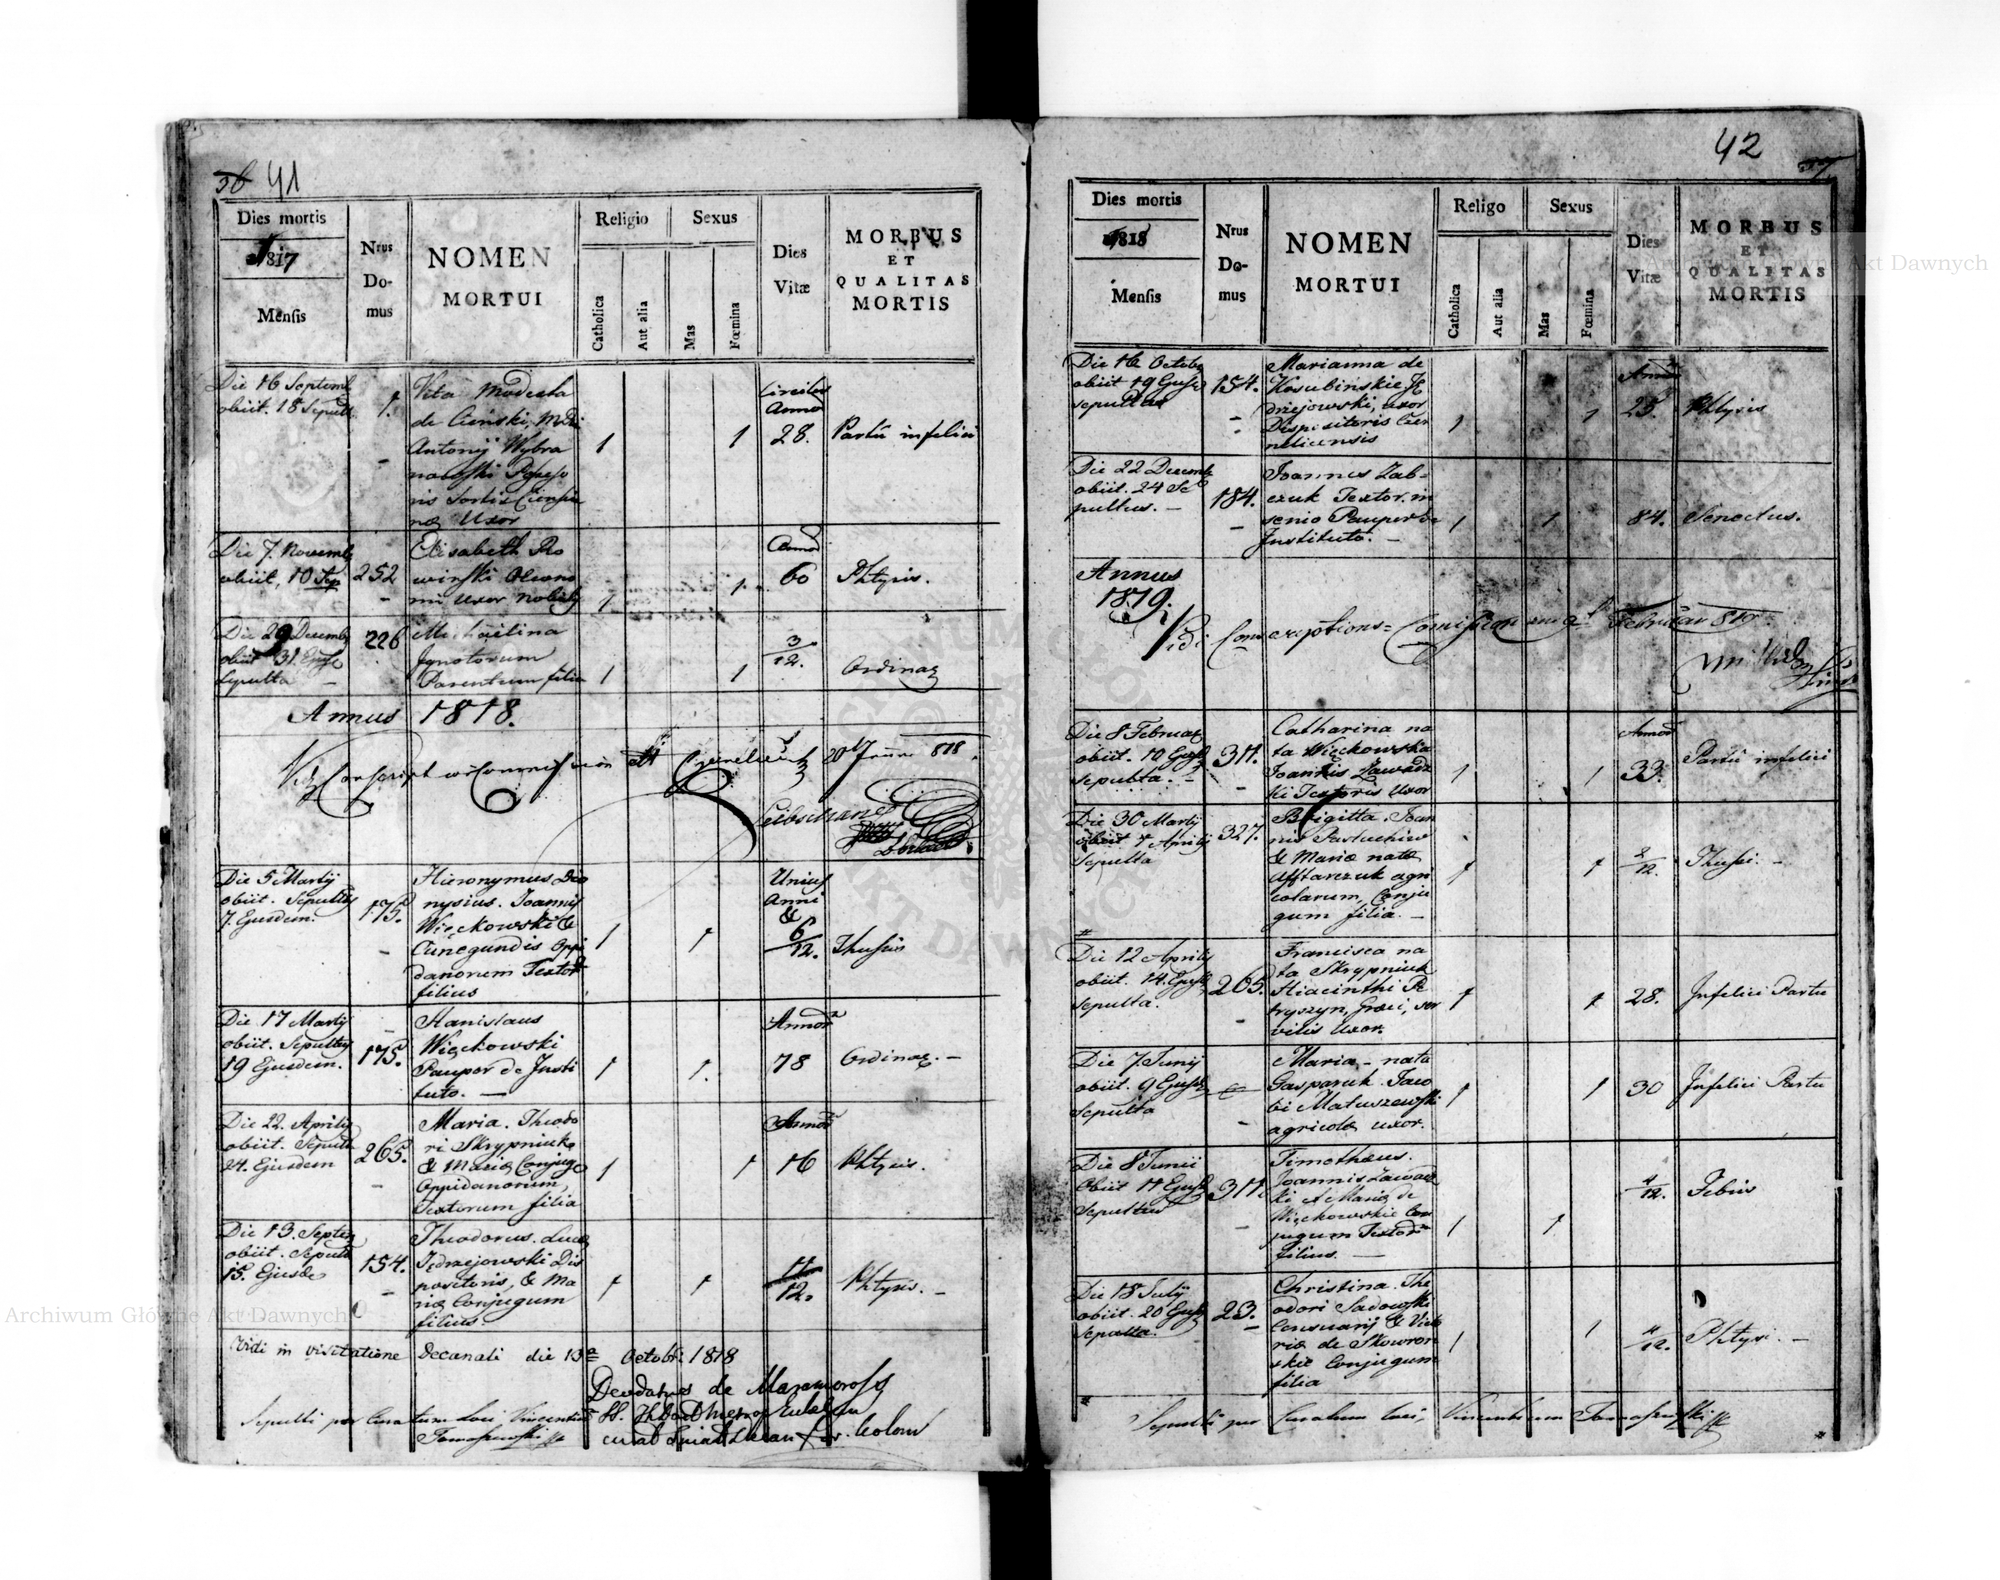 36 41
Dies mortis
1817
Mensis
Nrus
Do-
mus
NOMEN
MORTUI
Religio
Catholica
Aut alia
Sexus
Mas
Fœmina
Dies
Vitæ
MORBUS
ET
QUALITAS
MORTIS
Die 16 Septemb
obiit. 18 Sepult
1.
Vita Modesta
de Cieński, M.D.
Antonij Wybra
nowski Posseso
ris Sortis
Uxor
1
1
circiter
Anno
28.
Partu infelici
Die 7. Novemb
obiit, 10 Sep
252
Elisabeth Ro
winski Olcono
mi Uxor Nobilis
1
1
Annor
60
Phtysis.
Die 29 Decemb
obiit 31. Ejusd
Sepulta
226
Michaelina
Ignotorum
Parentum filia
1
1
3/12.
Ordinar
Annus 1818.
818
Die 5 Martij
obiit. Sepultus
7. Ejusdem.
175.
Hieronymus Dio
nysius. Joannis
Więckowski &
Cunegundis Oppi
danorum Textor
filius
1
1
Unius
Anni
&
6/12.
Thussis
Die 17 Martij
obiit. Sepultus
19 Ejusdem.
175.
Stanislaus
Więckowski
Pauper de Insti
tuto.
1
1.
Annor
78
Ordinar.
Die 22. Aprilis
obiit. Sepulta
24. Ejusdem
265.
Maria. Theodo
ri Skrypniuk
& Maria Conjug
Oppidanorum,
Textorum filia
1
1
Annor
16
Phtysis.
Die 13. Septem
obiit. Sepult
15. Ejusde
154.
Theodorus. Luca
Jedrzejowski Dis
positoris, & Ma
riæ Conjugum
filius.
1
1
11/12.
Phtysis.
Vidi in visitatione Decanali die 13a Octobr. 1818
Deodatus de
Sepulti per Curatum Loci, Vincentium
Tomaszewski
42
37
Dies mortis
1818
Mensis
Nrus
Do-
mus
NOMEN
MORTUI
Religo
Catholica
Aut alia
Sexus
Mas
Fœmina
Dies
Vitæ
MORBUS
ET
QUALITAS
MORTIS
Die 16 Octobr
obiit 19 Ejusd
sepulta
154.
Marianna de
Kosubinskie Je
drzejowski, uxor
Dispositoris Czer
nelicensis
1
1
Annor
25.
Phtysis
Die 22 Decemb
obiit. 24 Se
pultus.
184.
Joannes Zab-
czuk Textor. in
senio Pauper de
Instituto.
1
1
84.
Senectus.
Annus
1819.
Vidi Conscriptions= Comission Februar 819
Die 8 Februar
obiit. 10 Ejusd
Sepulta.
311.
Catharina na
ta Więckowska
Joannis Zawadz
ki Textoris Uxor
1
1
Annor
33.
Partu infelici
Die 30 Martij
obiit 1 Aprilis
Sepulta
327.
Brigitta. Joan
nis
& Maria nata
agri
colarum, Conju
gum filia.
1
1
2/12.
Thussi.
Die 12 Aprilis
obiit. 14. Ejusd
Sepulta.
265.
Francisca na
ta Skrypniuk
Hiacinthi Pe
tryszyn, Græci, ser
vilis Uxor
1
1
28.
Infelici Partu
Die 7. Junij
obiit. 9 Ejusd
Sepulta
Maria. nata
Gasparuk. Jaco
bi Matuszewski
agricolæ uxor.
1
1
30
Infelici Partu
Die 8 Junii
Obiit 11 Ejusd
Sepultus
311.
Timotheus.
Joannis Zawadz
ki & Maria de
Więckowskie Con
jugum Textor
filius.
1
1
4/12.
Febris
Die 18 Julij
obiit. 20 Ejusd
Sepulta.
23.
Christina. The
odori Sadowski
Censuarij & Victo
ria de Skowron
skie Conjugum
filia
1
1
/12.
Phtysi.
Sepulti per Curatum Loci, Vincentium Tomaszewski
Archiwum Główne Akt Dawnych
Archiwum Główne Akt Dawnych